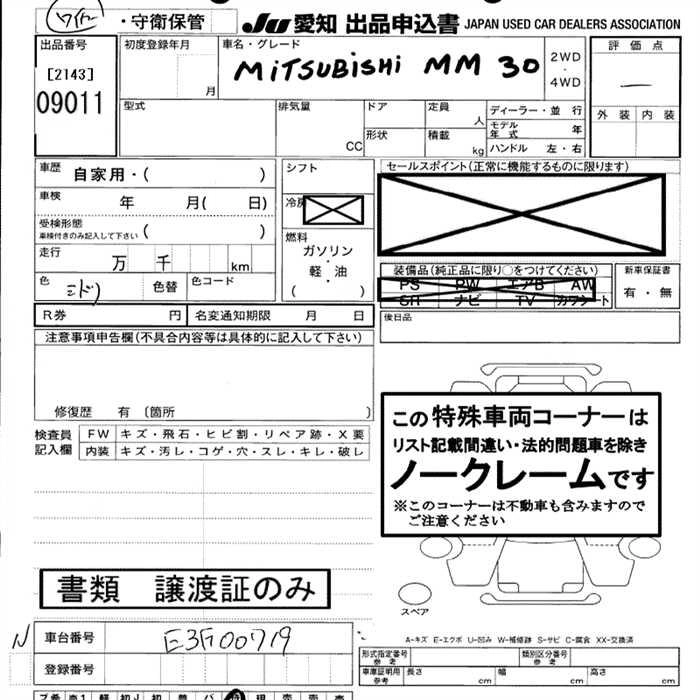 ワイトー ・守衛保管
JU 愛知 出品申込書 JAPAN USED CAR DEALERS ASSOCIATION
出品番号
[2143]
09011
初度登録年月
月
車名・グレード
MITSUBISHI MM 30
2WD
・
4WD
評価点
—
外装 内装
型式
排気量
CC
ドア
形状
定員
人
積載
kg
ディーラー・並 行
モデル年式 年
ハンドル 左・右
車歴 自家用・( )
車検 年 月( 日)
受検形態
車検付きのみ記入して下さい ( )
走行 万 千 km
色 ミドリ 色替 色コード
シフト
冷房
燃料
ガソリン
・
軽・油
( )
セールスポイント(正常に機能するものに限ります)
装備品(純正品に限り○をつけてください)
PS PW エアB AW
SR ナビ TV カワシート
新車保証書
有・無
R券 円 名変通知期限 月 日
後日品
注意事項申告欄(不具合内容等は具体的に記入して下さい)
修復歴 有 〔箇所 〕
検査員
記入欄
FW キズ・飛石・ヒビ割・リペア跡・X要
内装 キズ・汚レ・コゲ・穴・スレ・キレ・破レ
この特殊車両コーナーは
リスト記載間違い・法的問題車を除き
ノークレームです
※このコーナーは不動車も含みますので
ご注意ください
書類 譲渡証のみ
スペア
A-キズ E-エクボ U-凹み W-補修跡 S-サビ C-腐食 XX-交換済
N 車台番号 E3F00719
登録番号
形式指定番号
参考
類別区分番号
参考
車庫証明用
参考
長さ cm 幅 cm 高さ cm